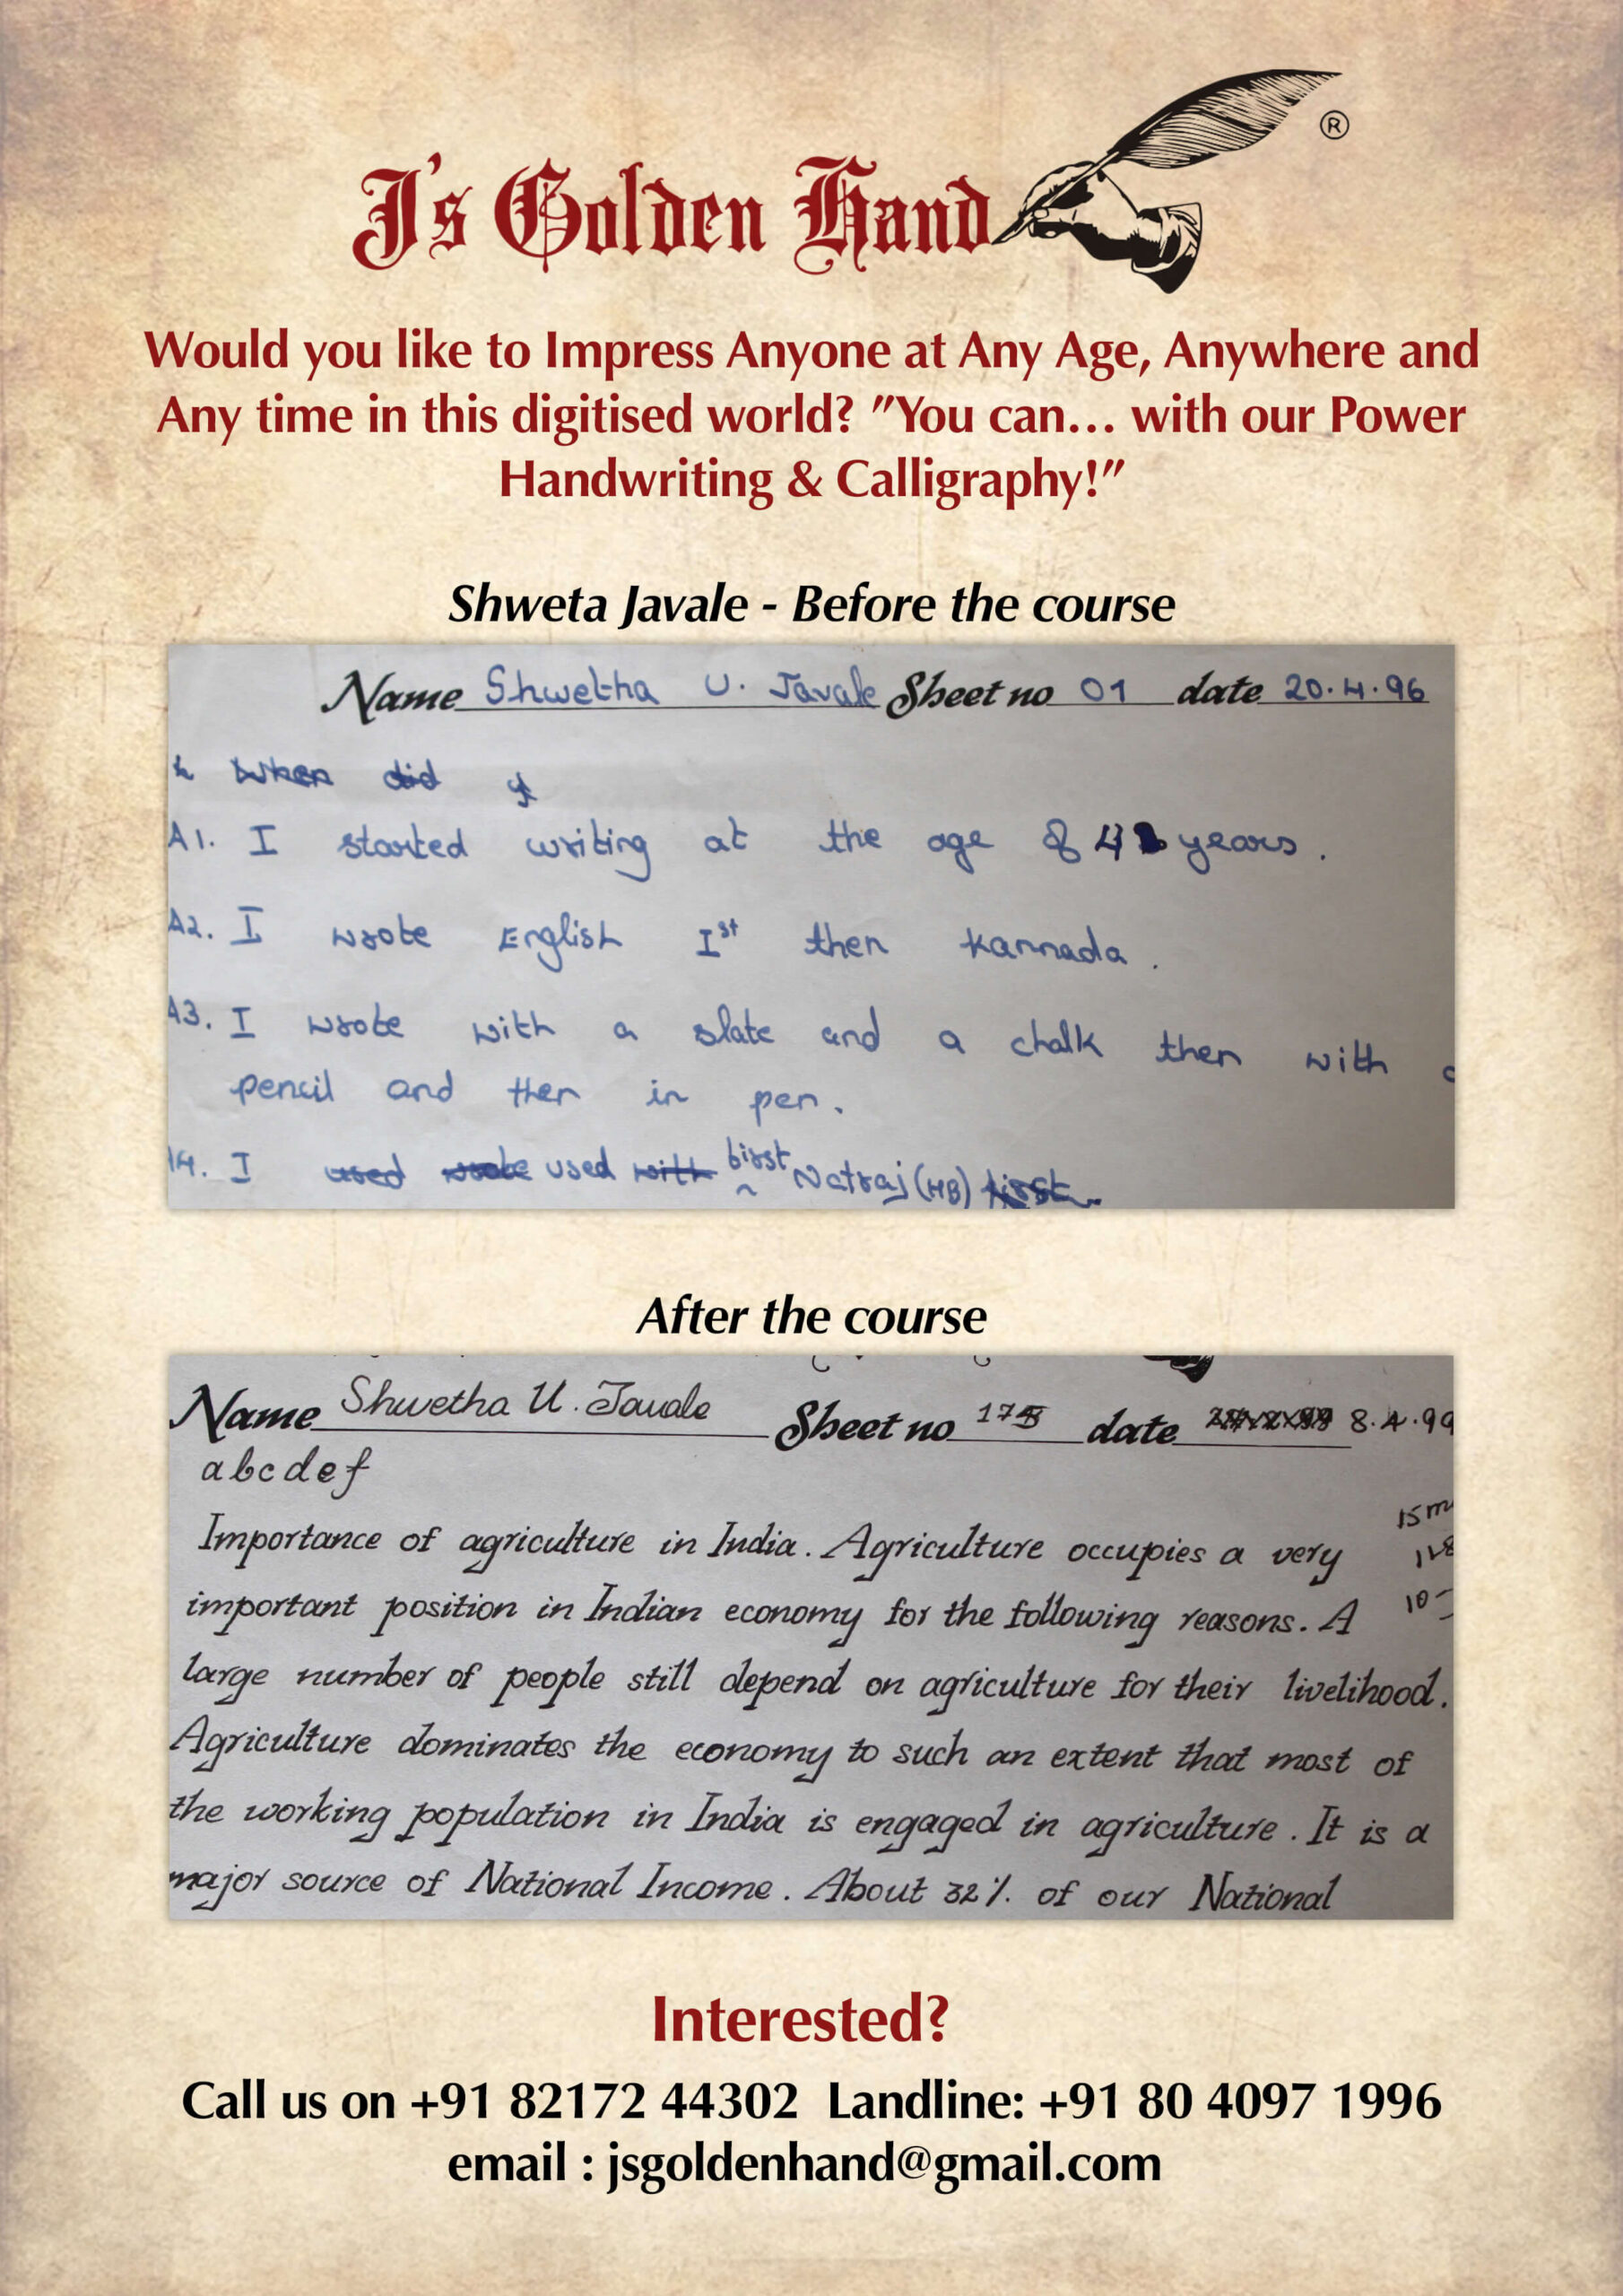 J's Golden Hand ®
Would you like to Impress Anyone at Any Age, Anywhere and
Any time in this digitised world? "You can... with our Power
Handwriting & Calligraphy!"
Shweta Javale - Before the course
Name Shwetha U. Javale Sheet no 01 date 20.4.96
When did y
A1. I started writing at the age of 4 years.
A2. I wrote English Ist then kannada.
A3. I wrote with a slate and a chalk then with
pencil and then in pen.
A4. I used wrote used with first Natraj (HB) first
After the course
Name Shwetha U. Javale Sheet no date 8.4.99
abcdef
15m
Importance of agriculture in India. Agriculture occupies a very
important position in Indian economy for the following reasons. A
large number of people still depend on agriculture for their livelihood.
Agriculture dominates the economy to such an extent that most of
the working population in India is engaged in agriculture. It is a
major source of National Income. About 32% of our National
Interested?
Call us on +91 82172 44302 Landline: +91 80 4097 1996
email : jsgoldenhand@gmail.com